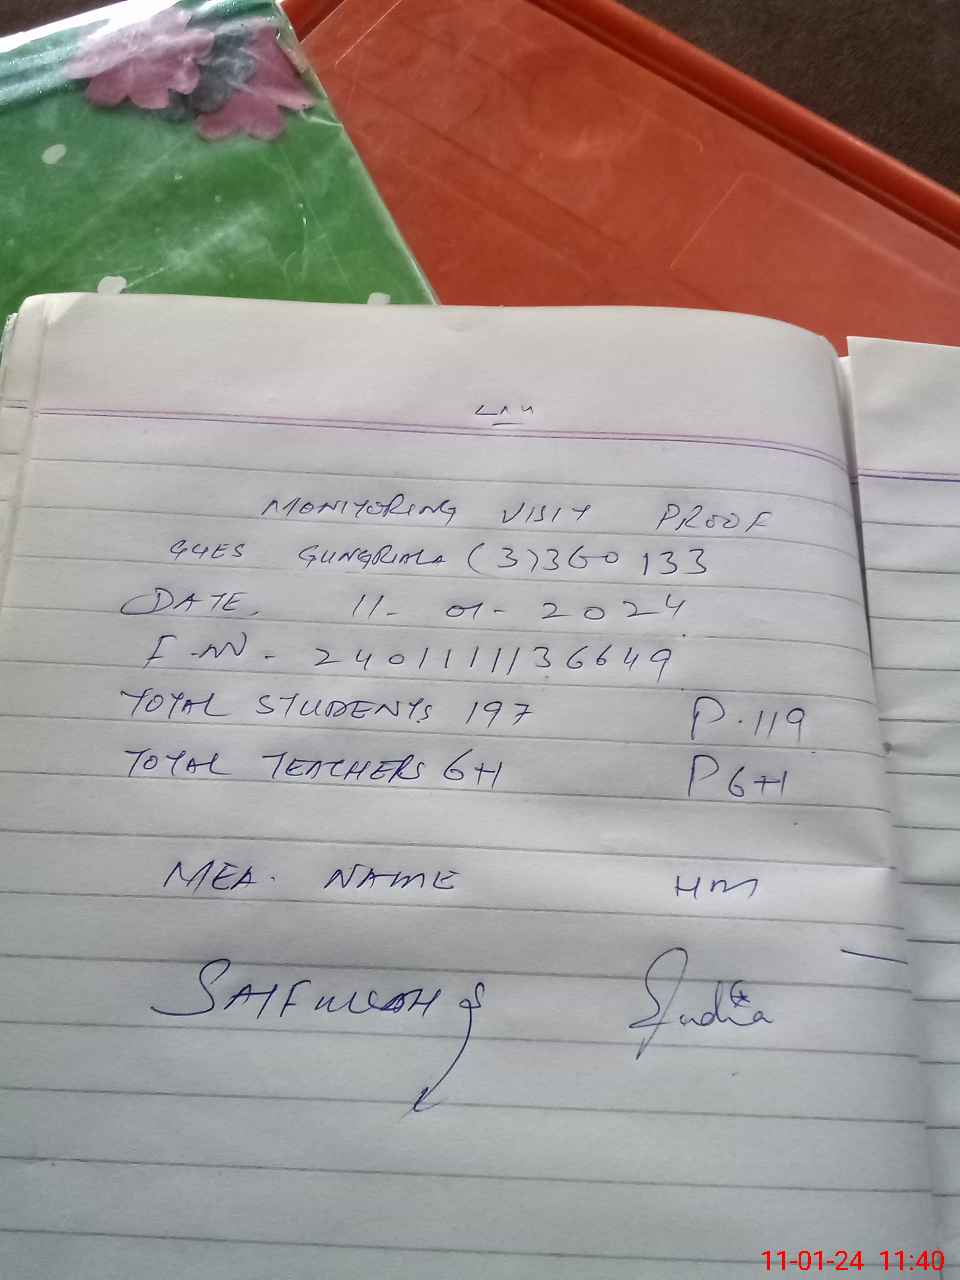 MONITORING VISIT PROOF
GGES GUNGRIALA (3)360133
DATE. 11-01-2024
F-N - 24011111136649
TOTAL STUDENTS 197 P.119
TOTAL TEACHERS 6H P 6H
MEA. NAME HM
SAIFULLAH
11-01-24 11:40